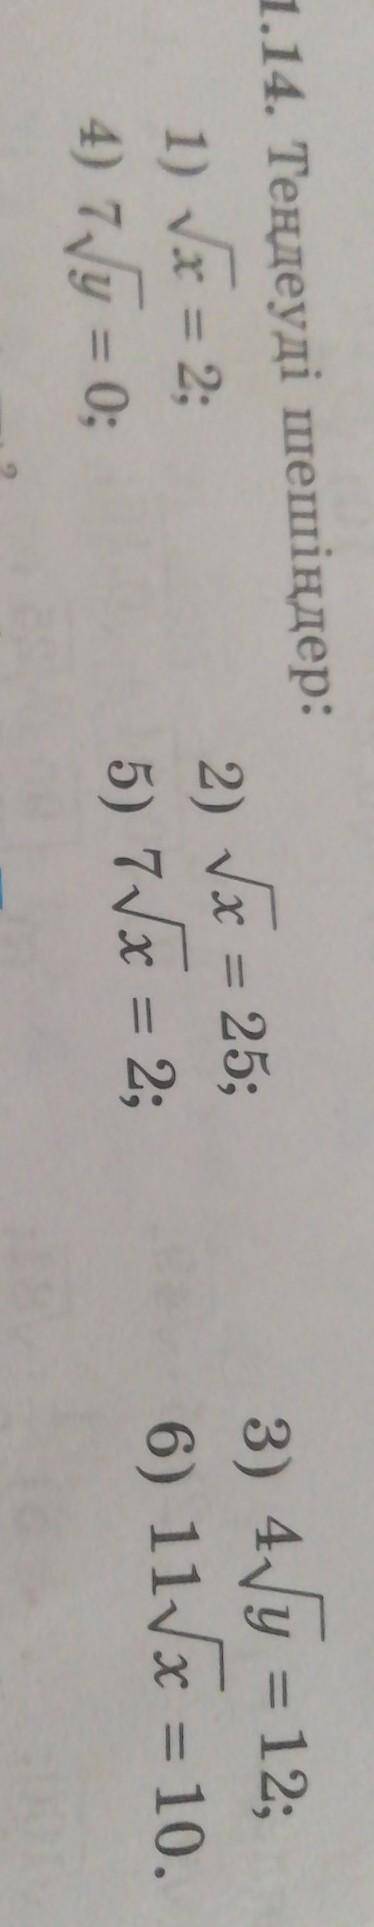 1.14. Теңдеуді шешіңдер:
1) √x = 2; 2) √x = 25; 3) 4√y = 12;
4) 7√y = 0; 5) 7√x = 2; 6) 11√x = 10.